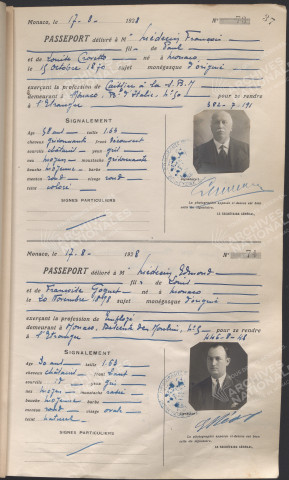 37
Monaco, le 17-8-1928 N°
PASSEPORT délivré à M. Médecin François
fils de Paul
et de Louise Crovetto né à Monaco
le 15 octobre 1870 sujet monégasque d'origine
exerçant la profession de Caissier à la S.B.M
demeurant à Monaco, Bd d'Italie, N° 50 pour se rendre
à l'Etranger
SIGNALEMENT
âge 58 ans taille 1.66
cheveux grisonnants front découvert
sourcils châtains yeux gris
nez moyen moustache grisonnante
bouche moyenne barbe
menton rond visage rond
teint coloré
SIGNES PARTICULIERS
La photographie apposée ci-dessus est bien
celle du signataire.
LE SECRÉTAIRE GÉNÉRAL,
Monaco, le 17-8-1928 N°
PASSEPORT délivré à M. Médecin Edmond
fils de Louis
et de Françoise née à Monaco
le 20 Novembre sujet monégasque d'origine
exerçant la profession de Employé
demeurant à Monaco, Descente du Moulin, N° pour se rendre
à l'Etranger
SIGNALEMENT
âge 30 ans taille 1.68
cheveux châtains front haut
sourcils d° yeux gris
nez moyen moustache rasée
bouche moyenne barbe
menton rond visage ovale
teint naturel
SIGNES PARTICULIERS
La photographie apposée ci-dessus est bien
celle du signataire.
LE SECRÉTAIRE GÉNÉRAL,